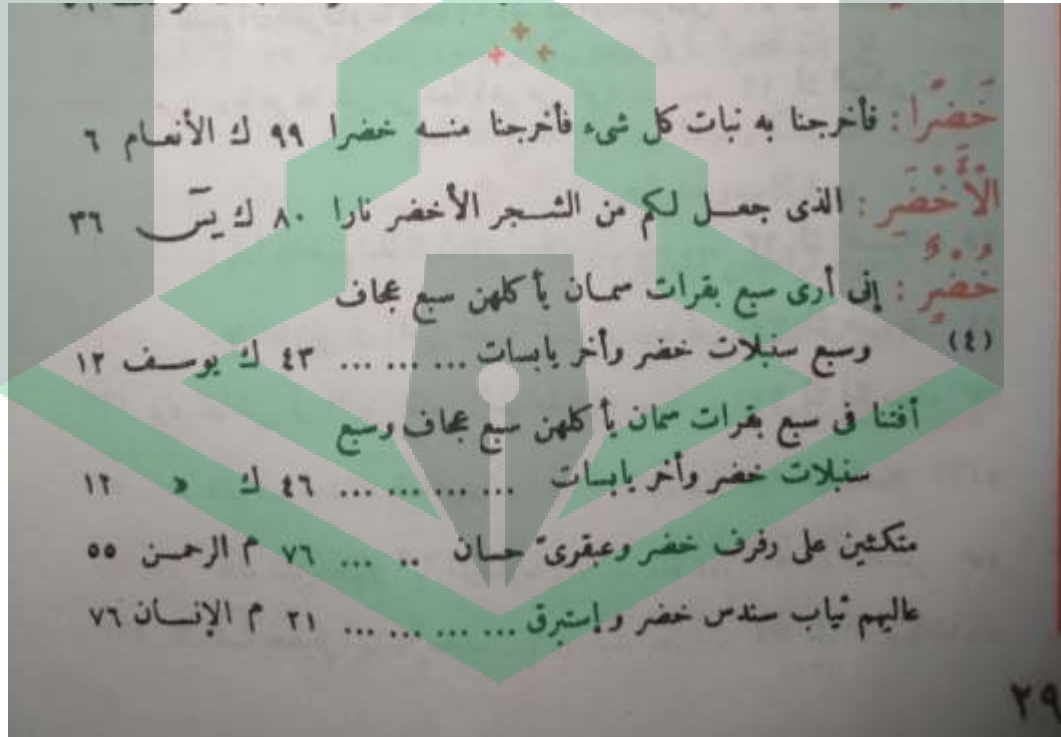 خَضِرًا : فأخرجنا به نبات كل شىء فأخرجنا منه خضرا ٩٩ ك الأنعام ٦
الْأَخْضَرِ : الذى جعل لكم من الشجر الأخضر نارا ٨٠ ك يسٓ ٣٦
خُضْرٍ : إنى أرى سبع بقرات سمان يأكلهن سبع عجاف
(٤) وسبع سنبلات خضر وأخر يابسات ... ... ... ٤٣ ك يوسف ١٢
أفتنا فى سبع بقرات سمان يأكلهن سبع عجاف وسبع
سنبلات خضر وأخر يابسات ... ... ... ... ٤٦ ك » ١٢
متكئين على رفرف خضر وعبقرىّ حسان .. ... ٧٦ م الرحمن ٥٥
عاليهم ثياب سندس خضر وإستبرق ... ... ... ... ٢١ م الإنسان ٧٦
٢٩